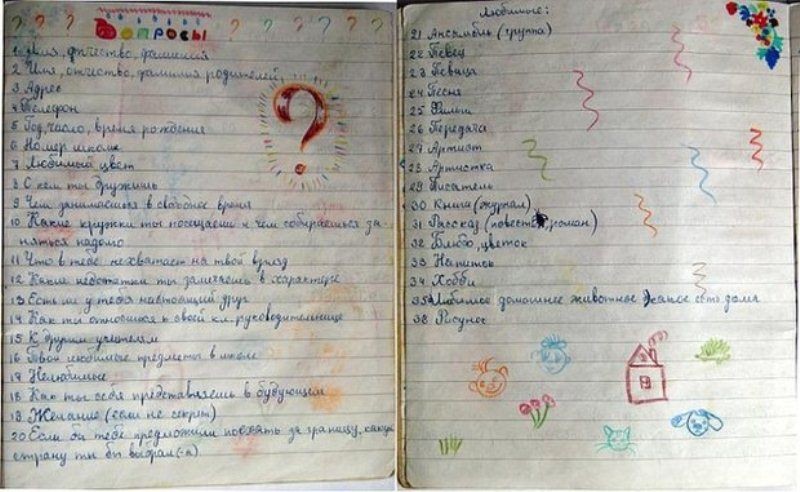 ? ? ? Вопросы ? ? ? ? ? ?
1 Имя, отчество, фамилия
2 Имя, отчество, фамилия родителей
3 Адрес
4 Телефон
5 Год, число, время рождения
6 Номер школы
7 Любимый цвет
8 С кем ты дружишь
9 Чем занимаешься в свободное время
10 Какие кружки ты посещаеш и чем собираешься за
няться надолго
11 Что в тебе нехватает на твой взгляд
12 Какие недостатки ты замечаешь в характере
13 Есть ли у тебя настоящий друг
14 Как ты относишся к своей кл.руководительнице
15 К другим учителям
16 Твои любимые предметы в школе
17 Нелюбимые
18 Как ты себя представляешь в будующем
19 Желание (если не секрет)
20 Если бы тебе предложили поехать за границу, какую
страну ты бы выбрал(-а)
?
Любимые:
21 Ансамбль (группа)
22 Певец
23 Певица
24 Песня
25 Фильм
26 Передача
27 Артист
28 Артистка
29 Писатель
30 Книги (журнал)
31 Рассказ (повесть, роман)
32 Блюдо, цветок
33 Напиток
34 Хобби
35 Любимое домашнее животное какое есть дома
36 Рисунок